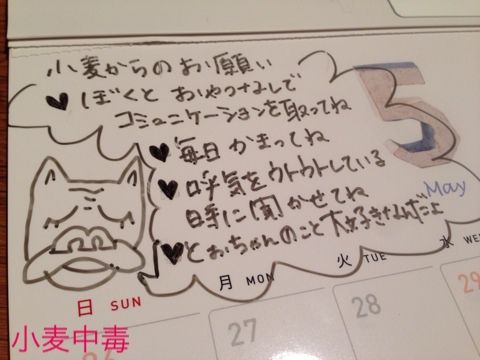 小麦からのお願い
♥ ぼくと おやつなしで
コミュニケーションを取ってね
♥ 毎日 かまってね
♥ 呼気をウトウトしている
時に聞かせてね
♥ とぉちゃんのこと大好きなんだよ
5
May
日 SUN
月 MON
火 TUE
水 WE
26
27
28
29
小麦中毒